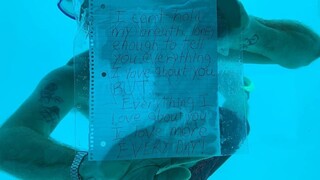 I can't hold
my breath long
enough to tell
you everything
I love about you
BUT
Everything I
love about you
I love more
EVERYDAY